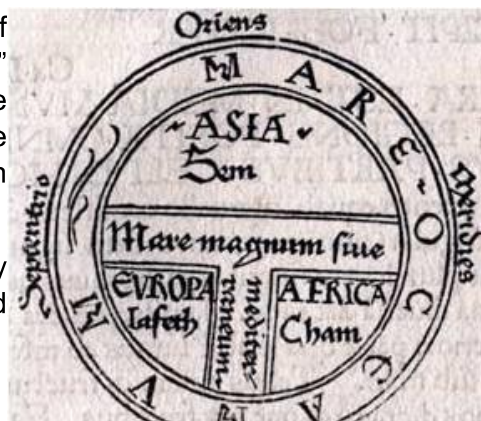 Oriens
MARE OCEANVM
ASIA
Sem
Septentrio
Meridies
Mare magnum siue
mediter
raneum
EVROPA
Iafeth
AFRICA
Cham